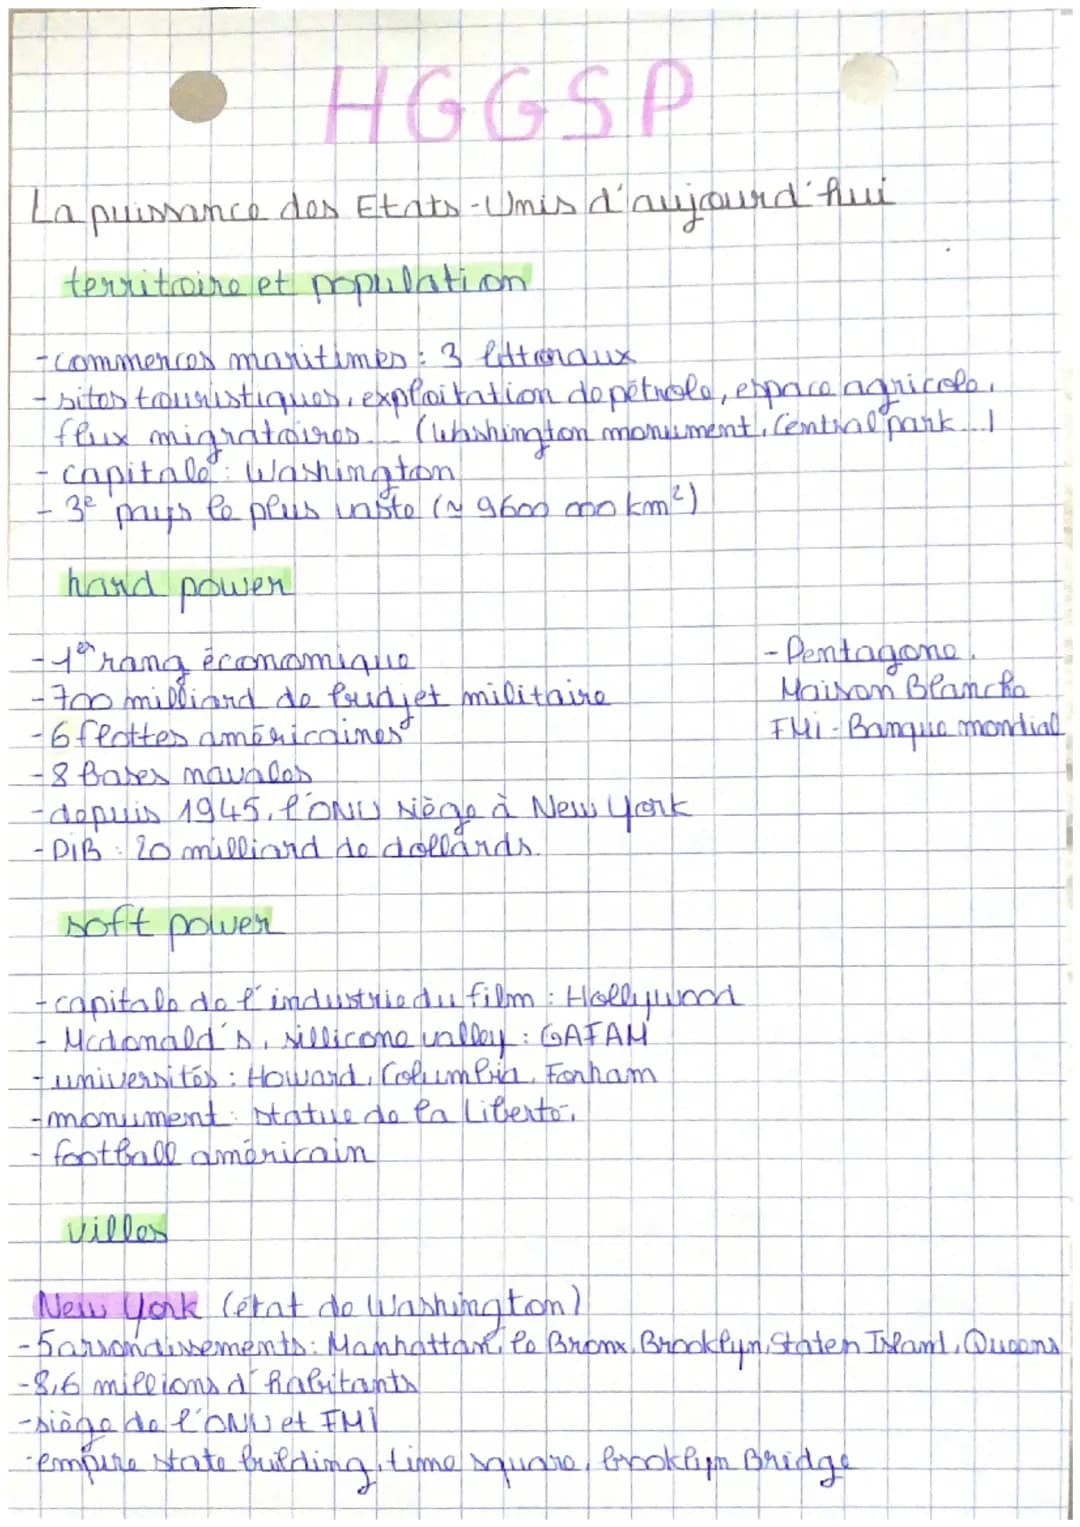 HGGSP
La puissance des Etats-Unis d'aujourd'hui
territoire et population
- commerces maritimes : 3 littoraux
- sites touristiques, exploitation de pétrole, espace agricole,
flux migratoires... (Washington monument, Central park...)
- capitale : Washington
- 3e pays le plus vaste (~ 9600 000 km²)
hard power
- 1er rang économique
- 700 milliard de budjet militaire
- 6 flottes américaines
- 8 bases navales
- depuis 1945, l'ONU siège à New York
- PIB : 20 milliard de dollards.
- Pentagone.
Maison Blanche
FMi - Banque mondial
soft power
- capitale de l'industrie du film : Hollywood
- Mcdonald's, sillicone valley : GAFAM
- universités : Howard, Columbia, Forham
- monument : statue de la Liberté.
- football américain
villes
New York (état de Washington)
- 5 arrondissements : Manhattan, le Bronx, Brooklyn, Staten Island, Queens
- 8,6 millions d'habitants
- siège de l'ONU et FMI
- empire state building, time square, brooklyn Bridge